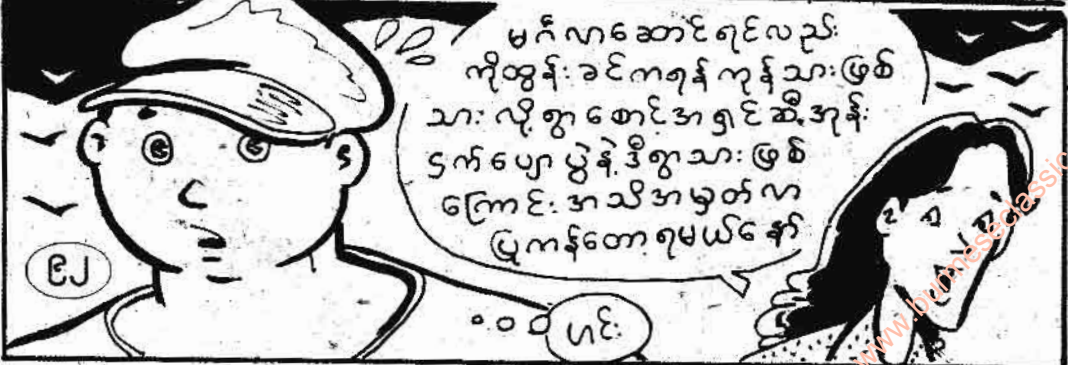 မင်္ဂလာဆောင်ရင်လည်း
ကိုထွန်းခင်ကရန်ကုန်သားဖြစ်
သားလို့ရွာစောင့်အရှင်ဆီ အုန်း
ငှက်ပျောပွဲနဲ့ဒီရွာသားဖြစ်
ကြောင်းအသိအမှတ်လာ
ပြုကန်တော့ရမယ်နော်
ဟင်း
၉၂
www.burmeseclassic